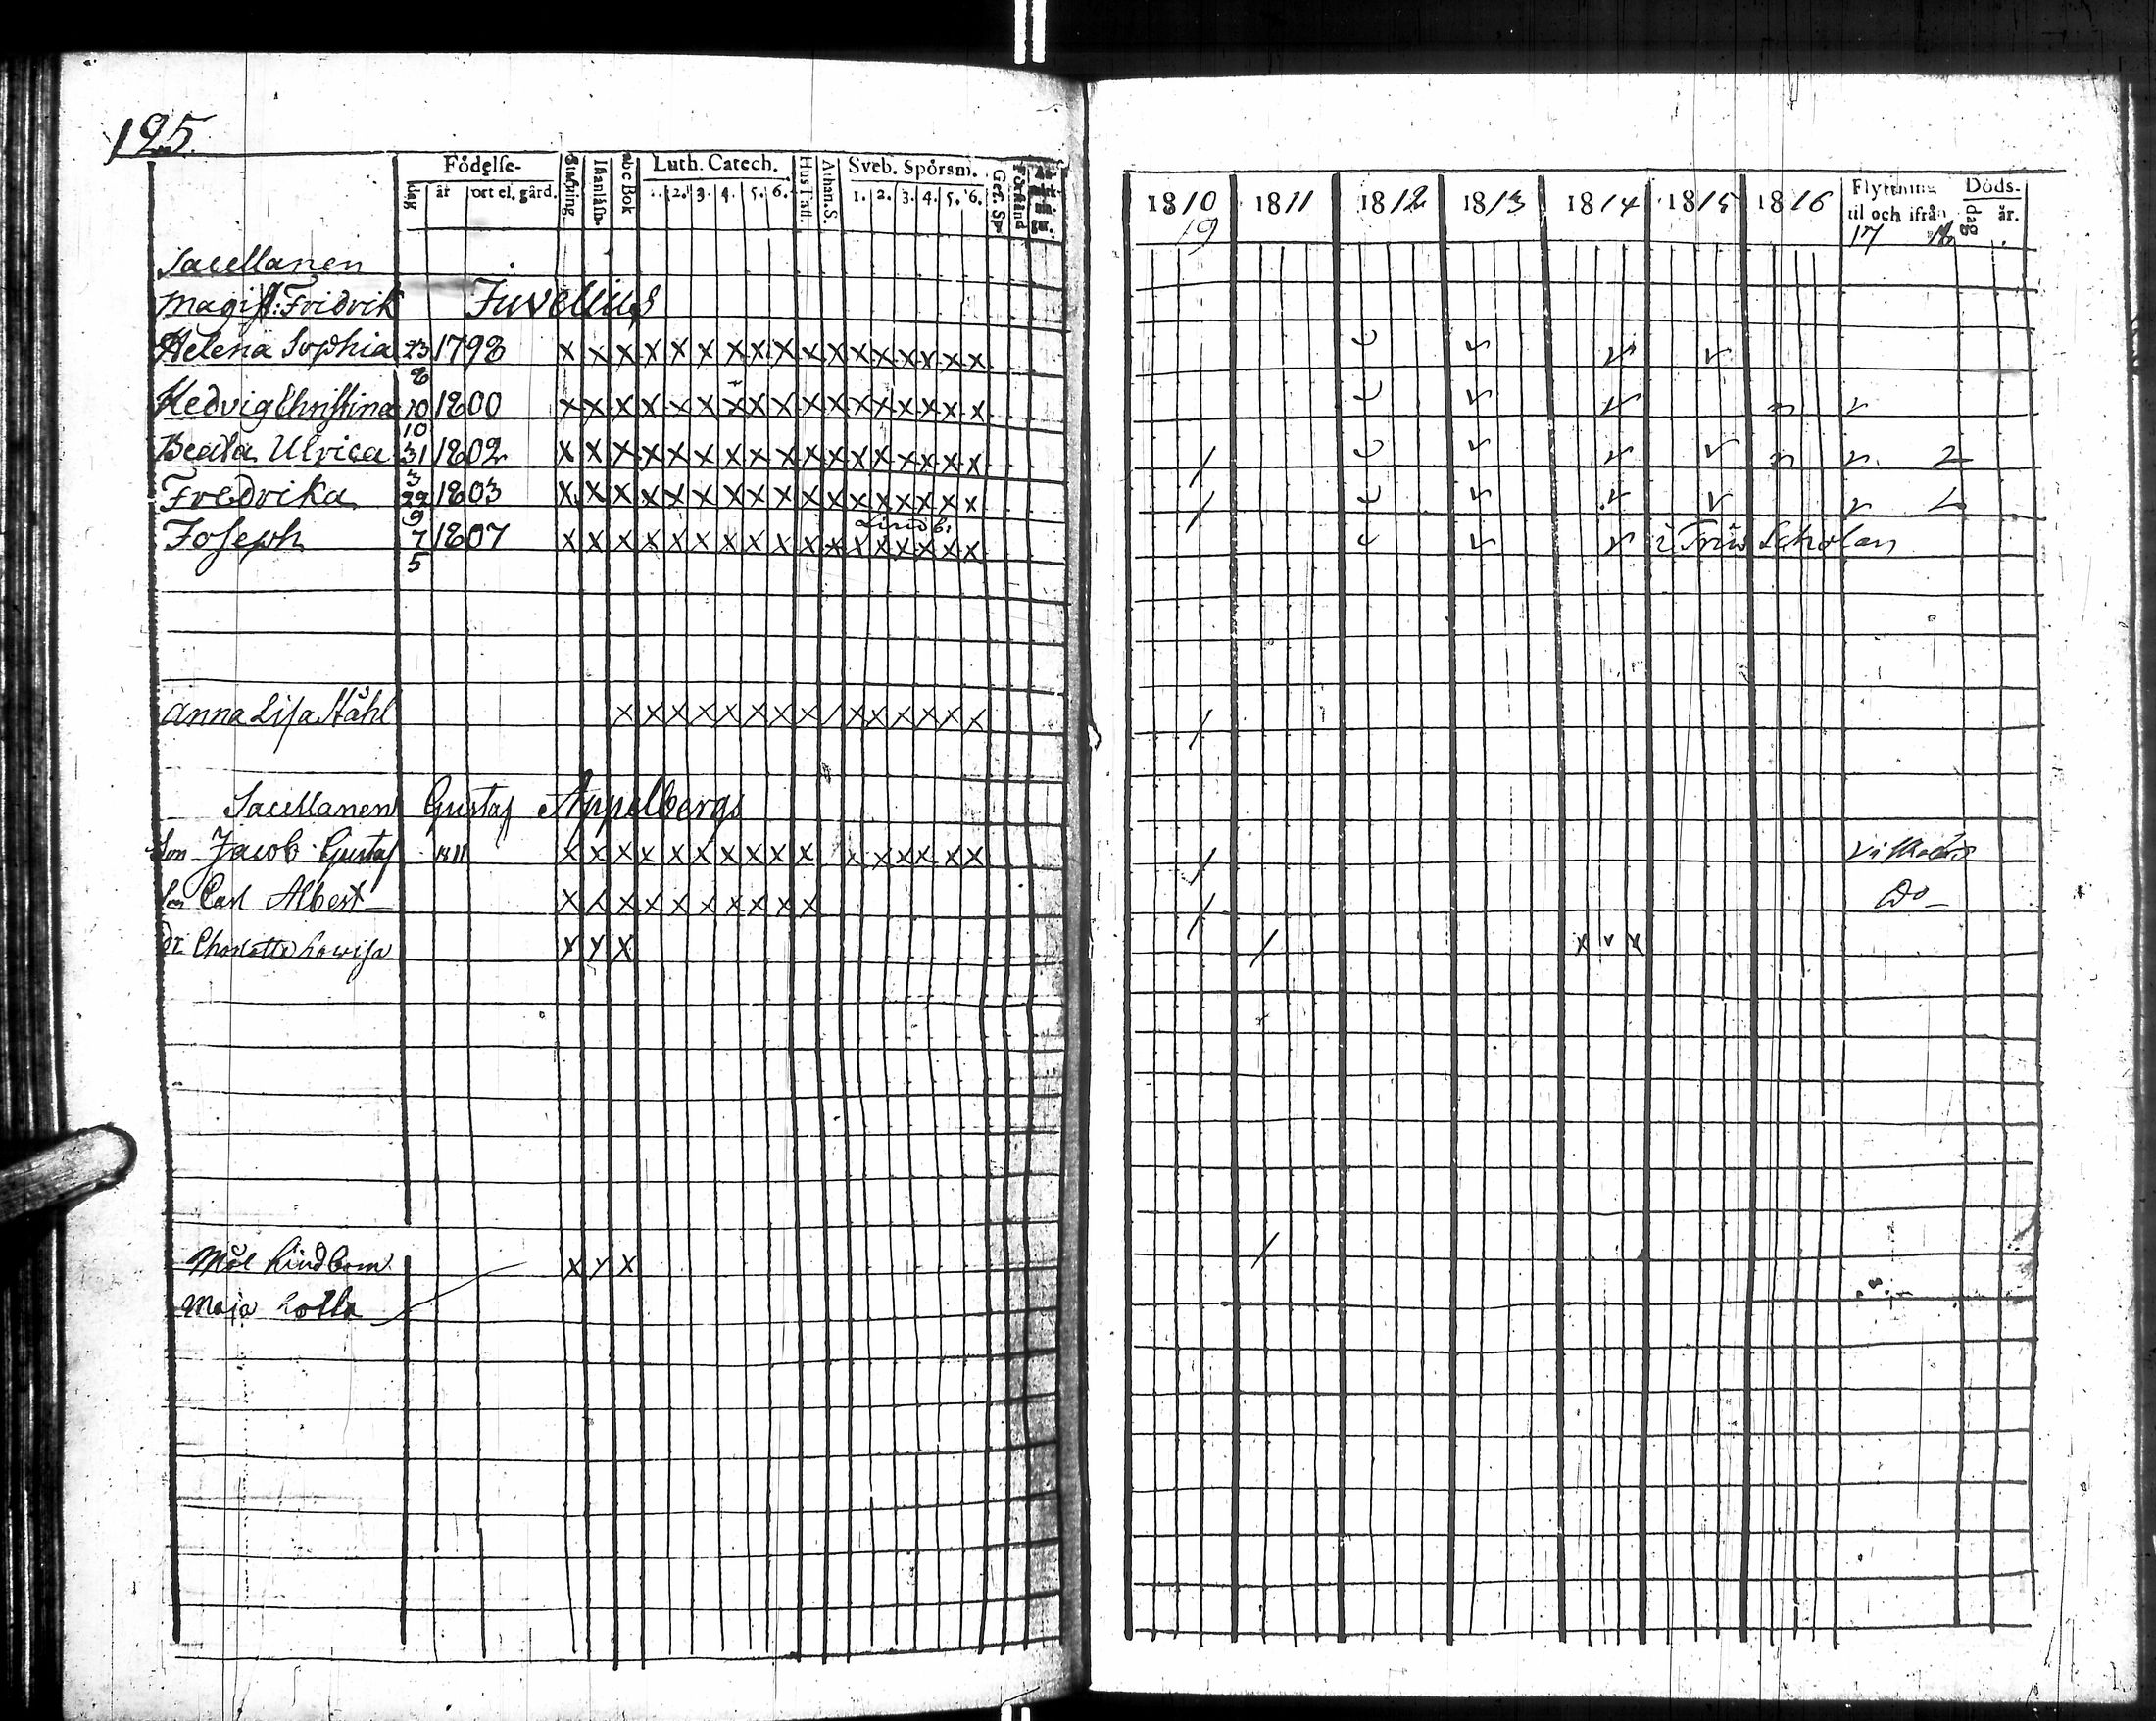 195.
Födelse- Luth. Catech. Hus Tafl. Athan. S. Sveb. Spörsm. Förstånd
dag år ort el. gård. Stafning Innanläsn. abc Bok 1. 2. 3. 4. 5. 6. 1. 2. 3. 4. 5. 6. Anmärkningar.
Sacellanen
Magist: Fridrik Juvelius
Helena Sophia 23/8 1798 x x x x x x x x x x x x x x x x x
Hedvig Christina 10/10 1800 x x x x x x x x x x x x x x x x x
Beata Ulrica 31/3 1802 x x x x x x x x x x x x x x x x x
Fredrika 22/9 1803 x x x x x x x x x x x x x x x x x
Joseph 7/5 1807 x x x x x x x x x x x x x x x x x
Anna Lisa Ståhl x x x x x x x x / x x x x x x
Sacellanens Gustaf Appelbergs
Son Jacob Gustaf 1811 x x x x x x x x x x x x x x x x
Son Carl Albert x x x x x x x x x x
dr Charlotta Lowisa x x x
Lindbom x y x
Maja Lotta
1810 1811 1812 1813 1814 1815 1816 Flyttning Döds-
til och ifrån dag år.
19 17
i Triv Scholan
Do
x v x